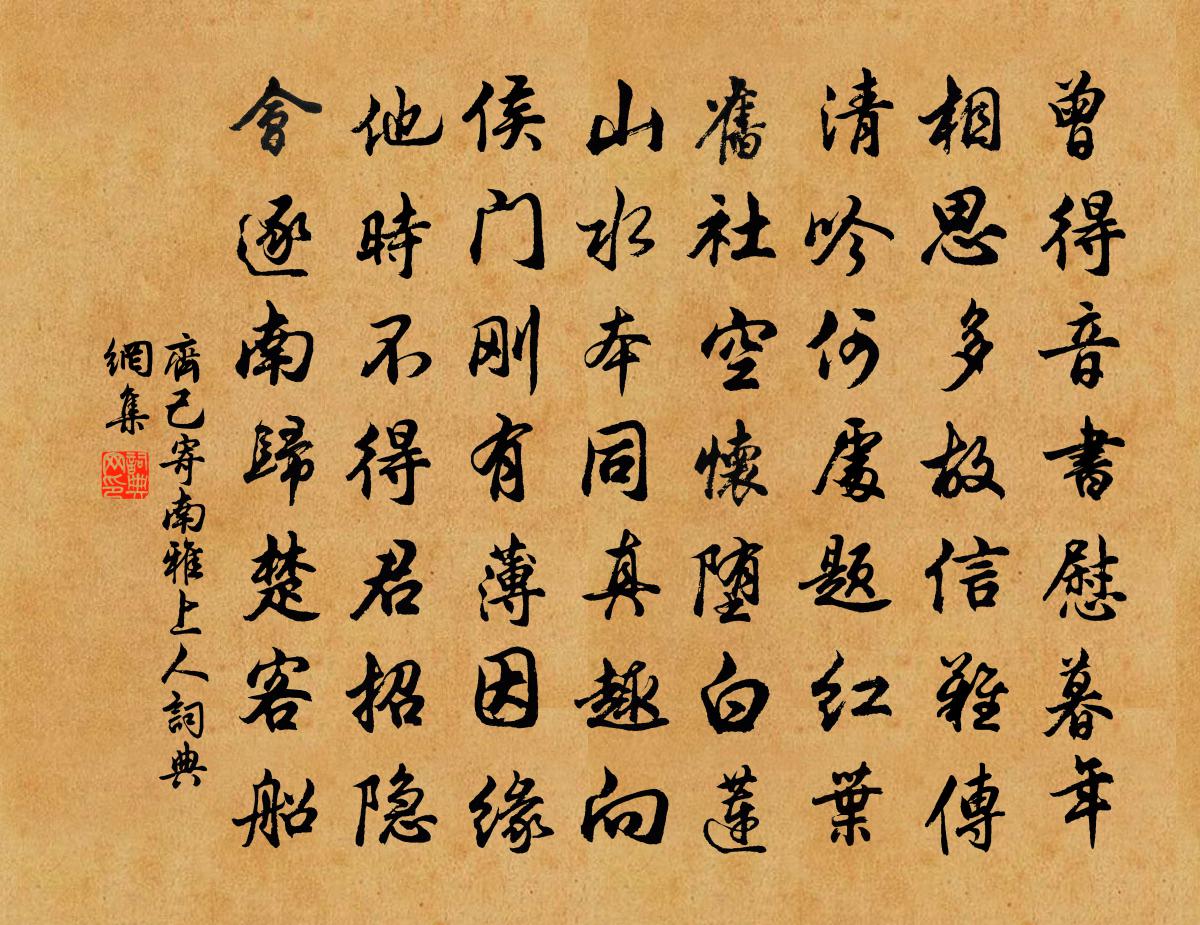 曾得音書慰暮年
相思多故信難傳
清吟何處題红葉
舊社空懷墮白蓮
山水本同真趣向
侯门刚有薄因緣
他時不得君招隐
會逐南歸楚客船
齊己寄南雅上人詞典
網集
詞典
网印